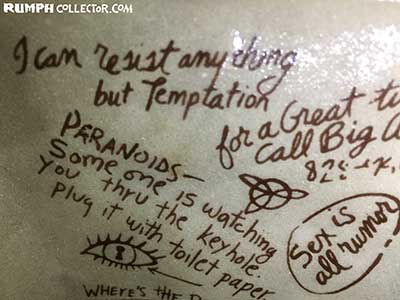 RUMPHCOLLECTOR.COM
I can resist anything
but Temptation
for a Great
Call Big
PERANOIDS—
Some one is watching
you thru the keyhole.
Plug it with toilet paper
Sex is
all rumor
WHERE'S THE